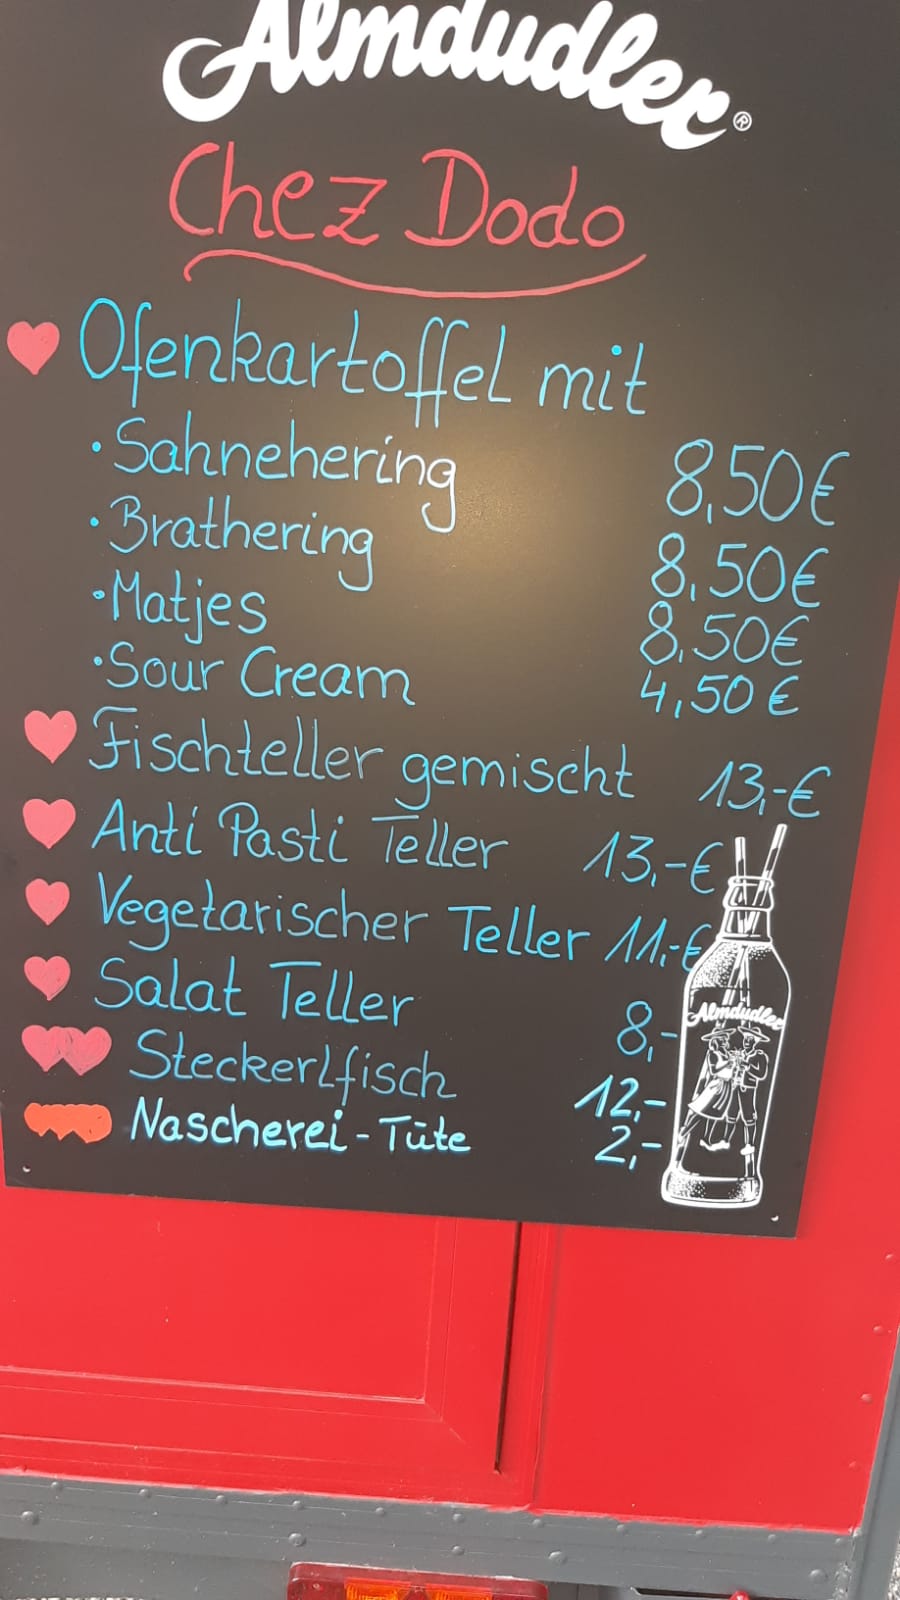 Almdudler®
Chez Dodo
Ofenkartoffel mit
· Sahnehering 8,50€
· Brathering 8,50€
· Matjes 8,50€
· Sour Cream 4,50€
Fischteller gemischt 13,-€
Anti Pasti Teller 13,-€
Vegetarischer Teller 11,-€
Salat Teller 8,-
Steckerlfisch 12,-
Nascherei-Tüte 2,-
Almdudler